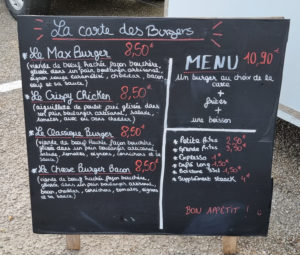 La carte des Burgers
Le Max Burger 8,50€
(viande de boeuf hachée façon bouchère,
glissée dans un pain boulanger artisanal,
oignon rouge caramélisé, cheddar, bacon,
oeuf et sa sauce)
Le Crispy Chicken 8,50€
(aiguillette de poulet pané glissée dans
son pain boulanger artisanal, salade,
tomates, avec ou sans cheddar)
Le Classique Burger 8,50€
(viande de boeuf hachée façon bouchère,
glissée dans un pain boulanger artisanal,
salade, tomates, oignons, cornichons et sa
sauce)
Le Cheese Burger Bacon 8,50€
(viande de boeuf hachée façon bouchère,
glissée dans un pain boulanger artisanal,
bacon, cheddar, cornichons, tomates, oignons
et sa sauce)
MENU 10,90€
un burger au choix de la
carte
+
frites
+
une boisson
Petite frite 2,50
Grande frite 3,50€
Expresso 1€
Café long 1,50€
Boisson 33cl 1,50€
Supplément steack 4€
BON APPÉTIT !